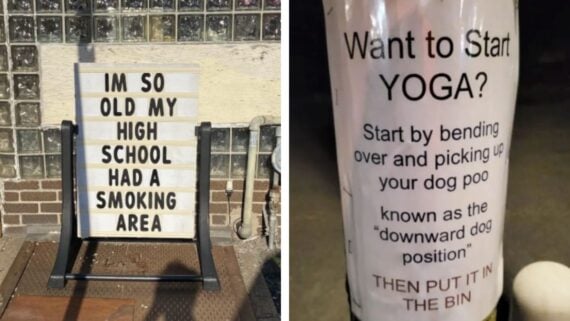 IM SO
OLD MY
HIGH
SCHOOL
HAD A
SMOKING
AREA
Want to Start
YOGA?
Start by bending
over and picking up
your dog poo
known as the
"downward dog
position"
THEN PUT IT IN
THE BIN